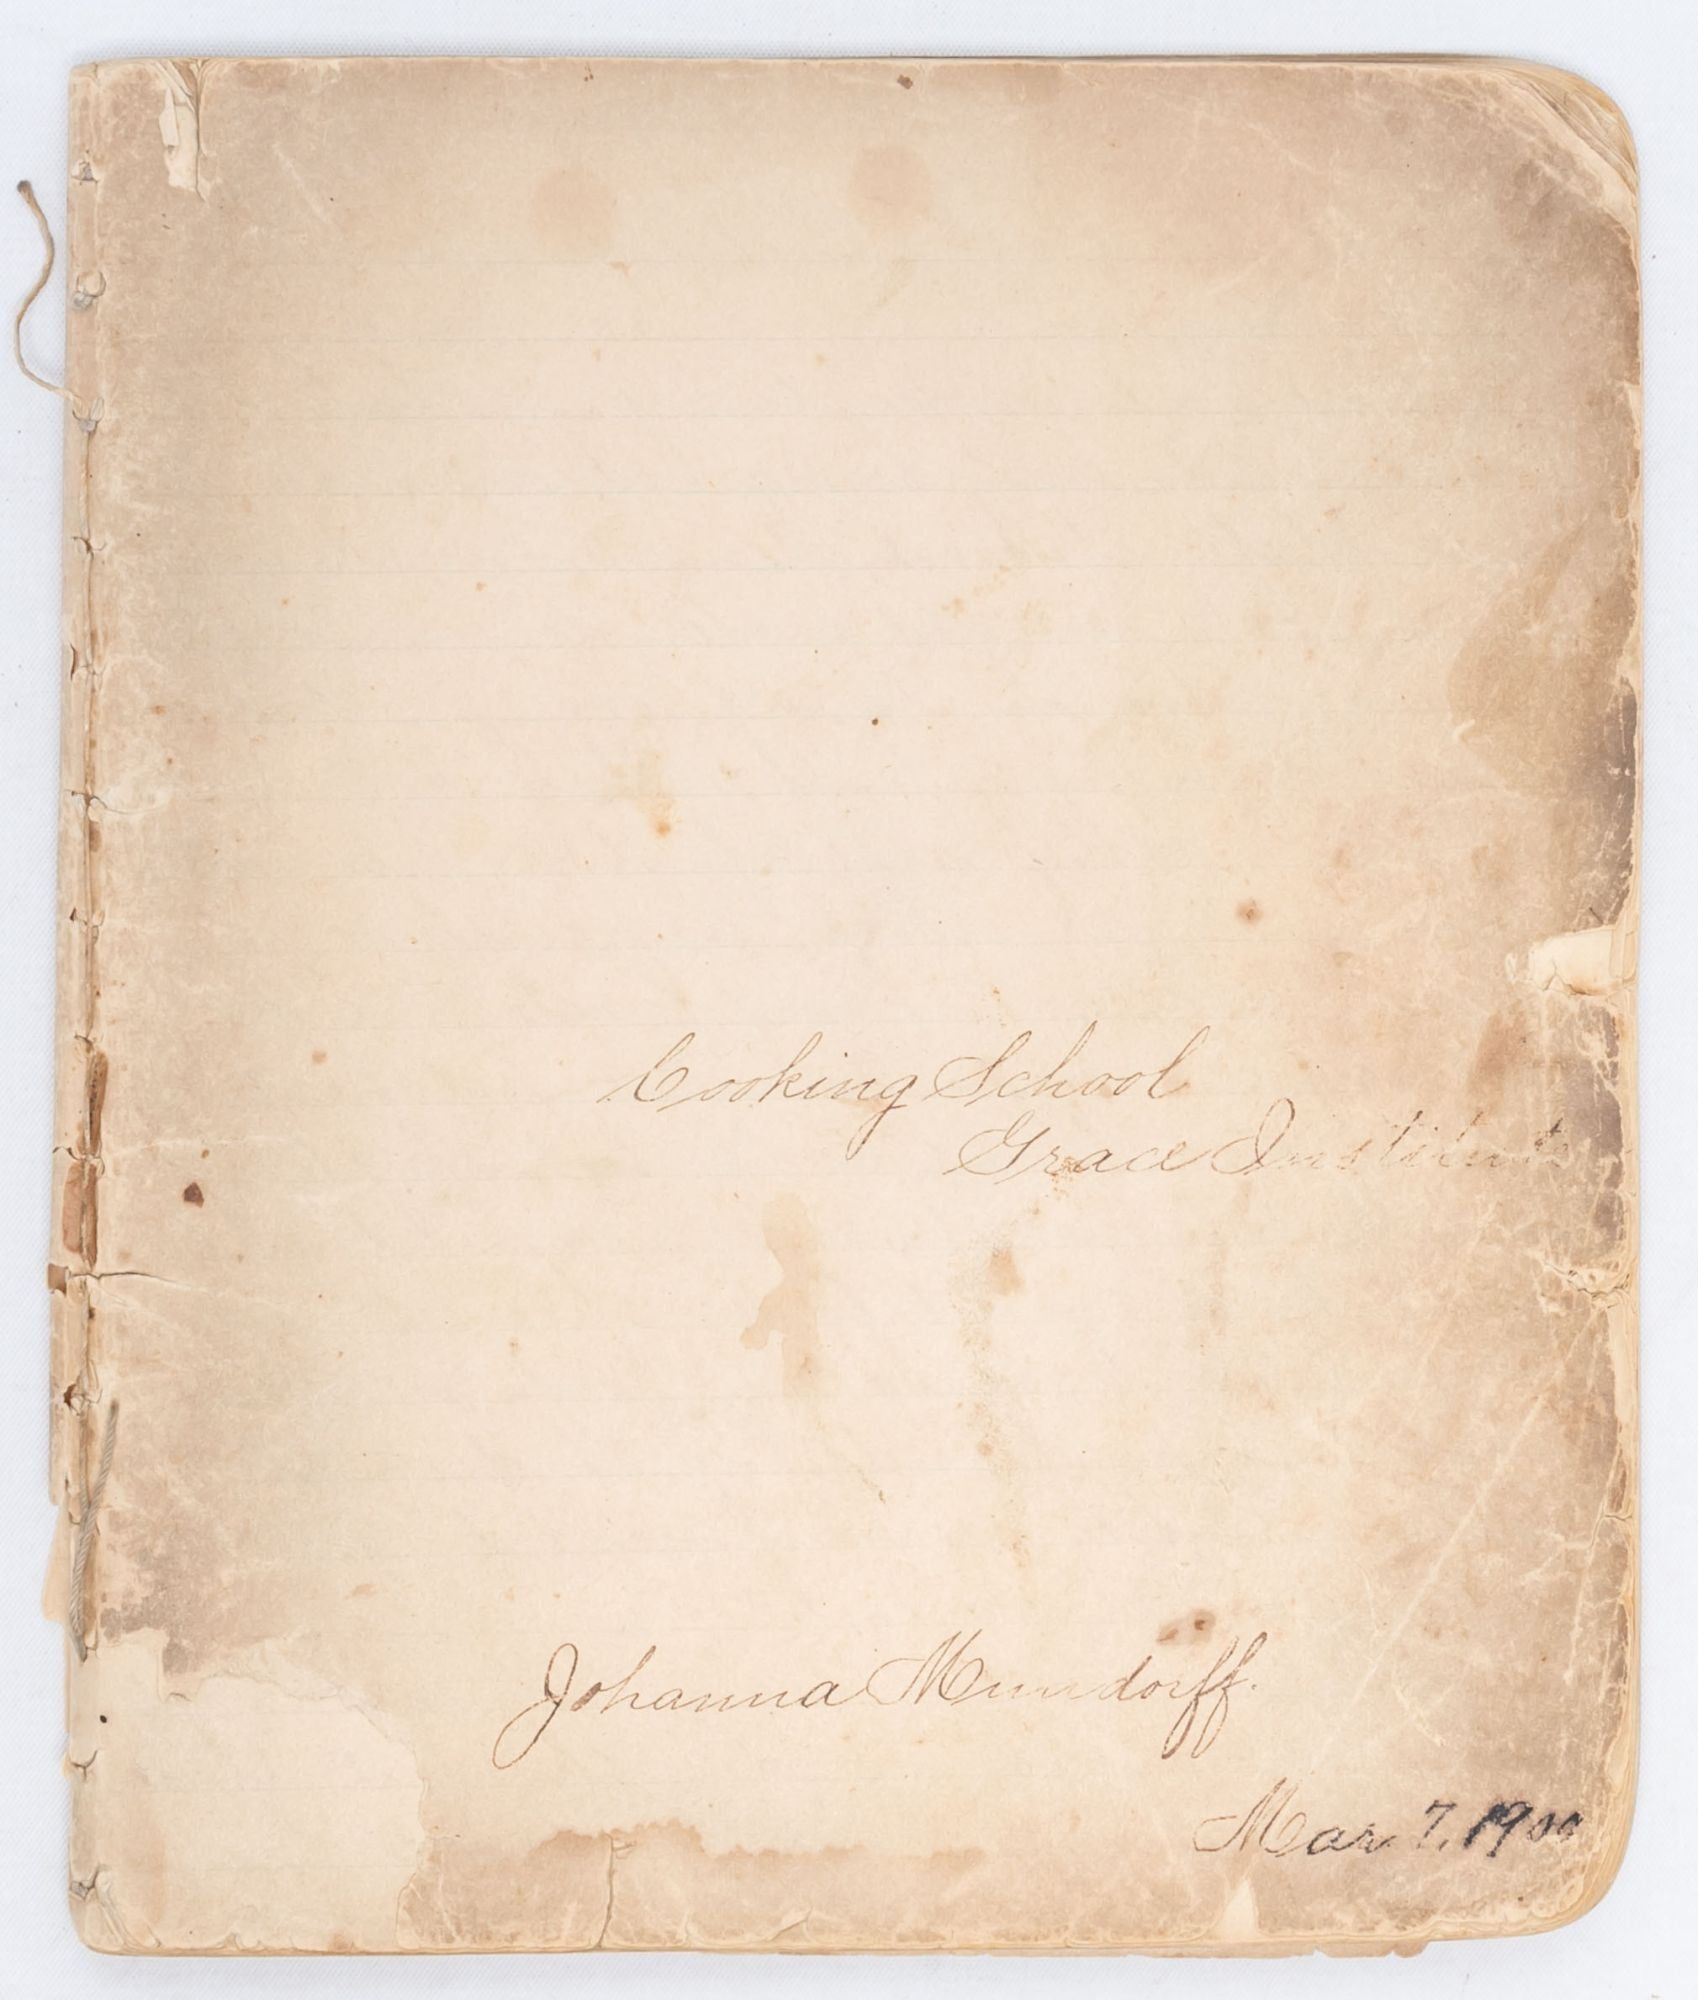 Cooking School
Grace Institute
Johanna Mundorff.
Mar 7, 1900